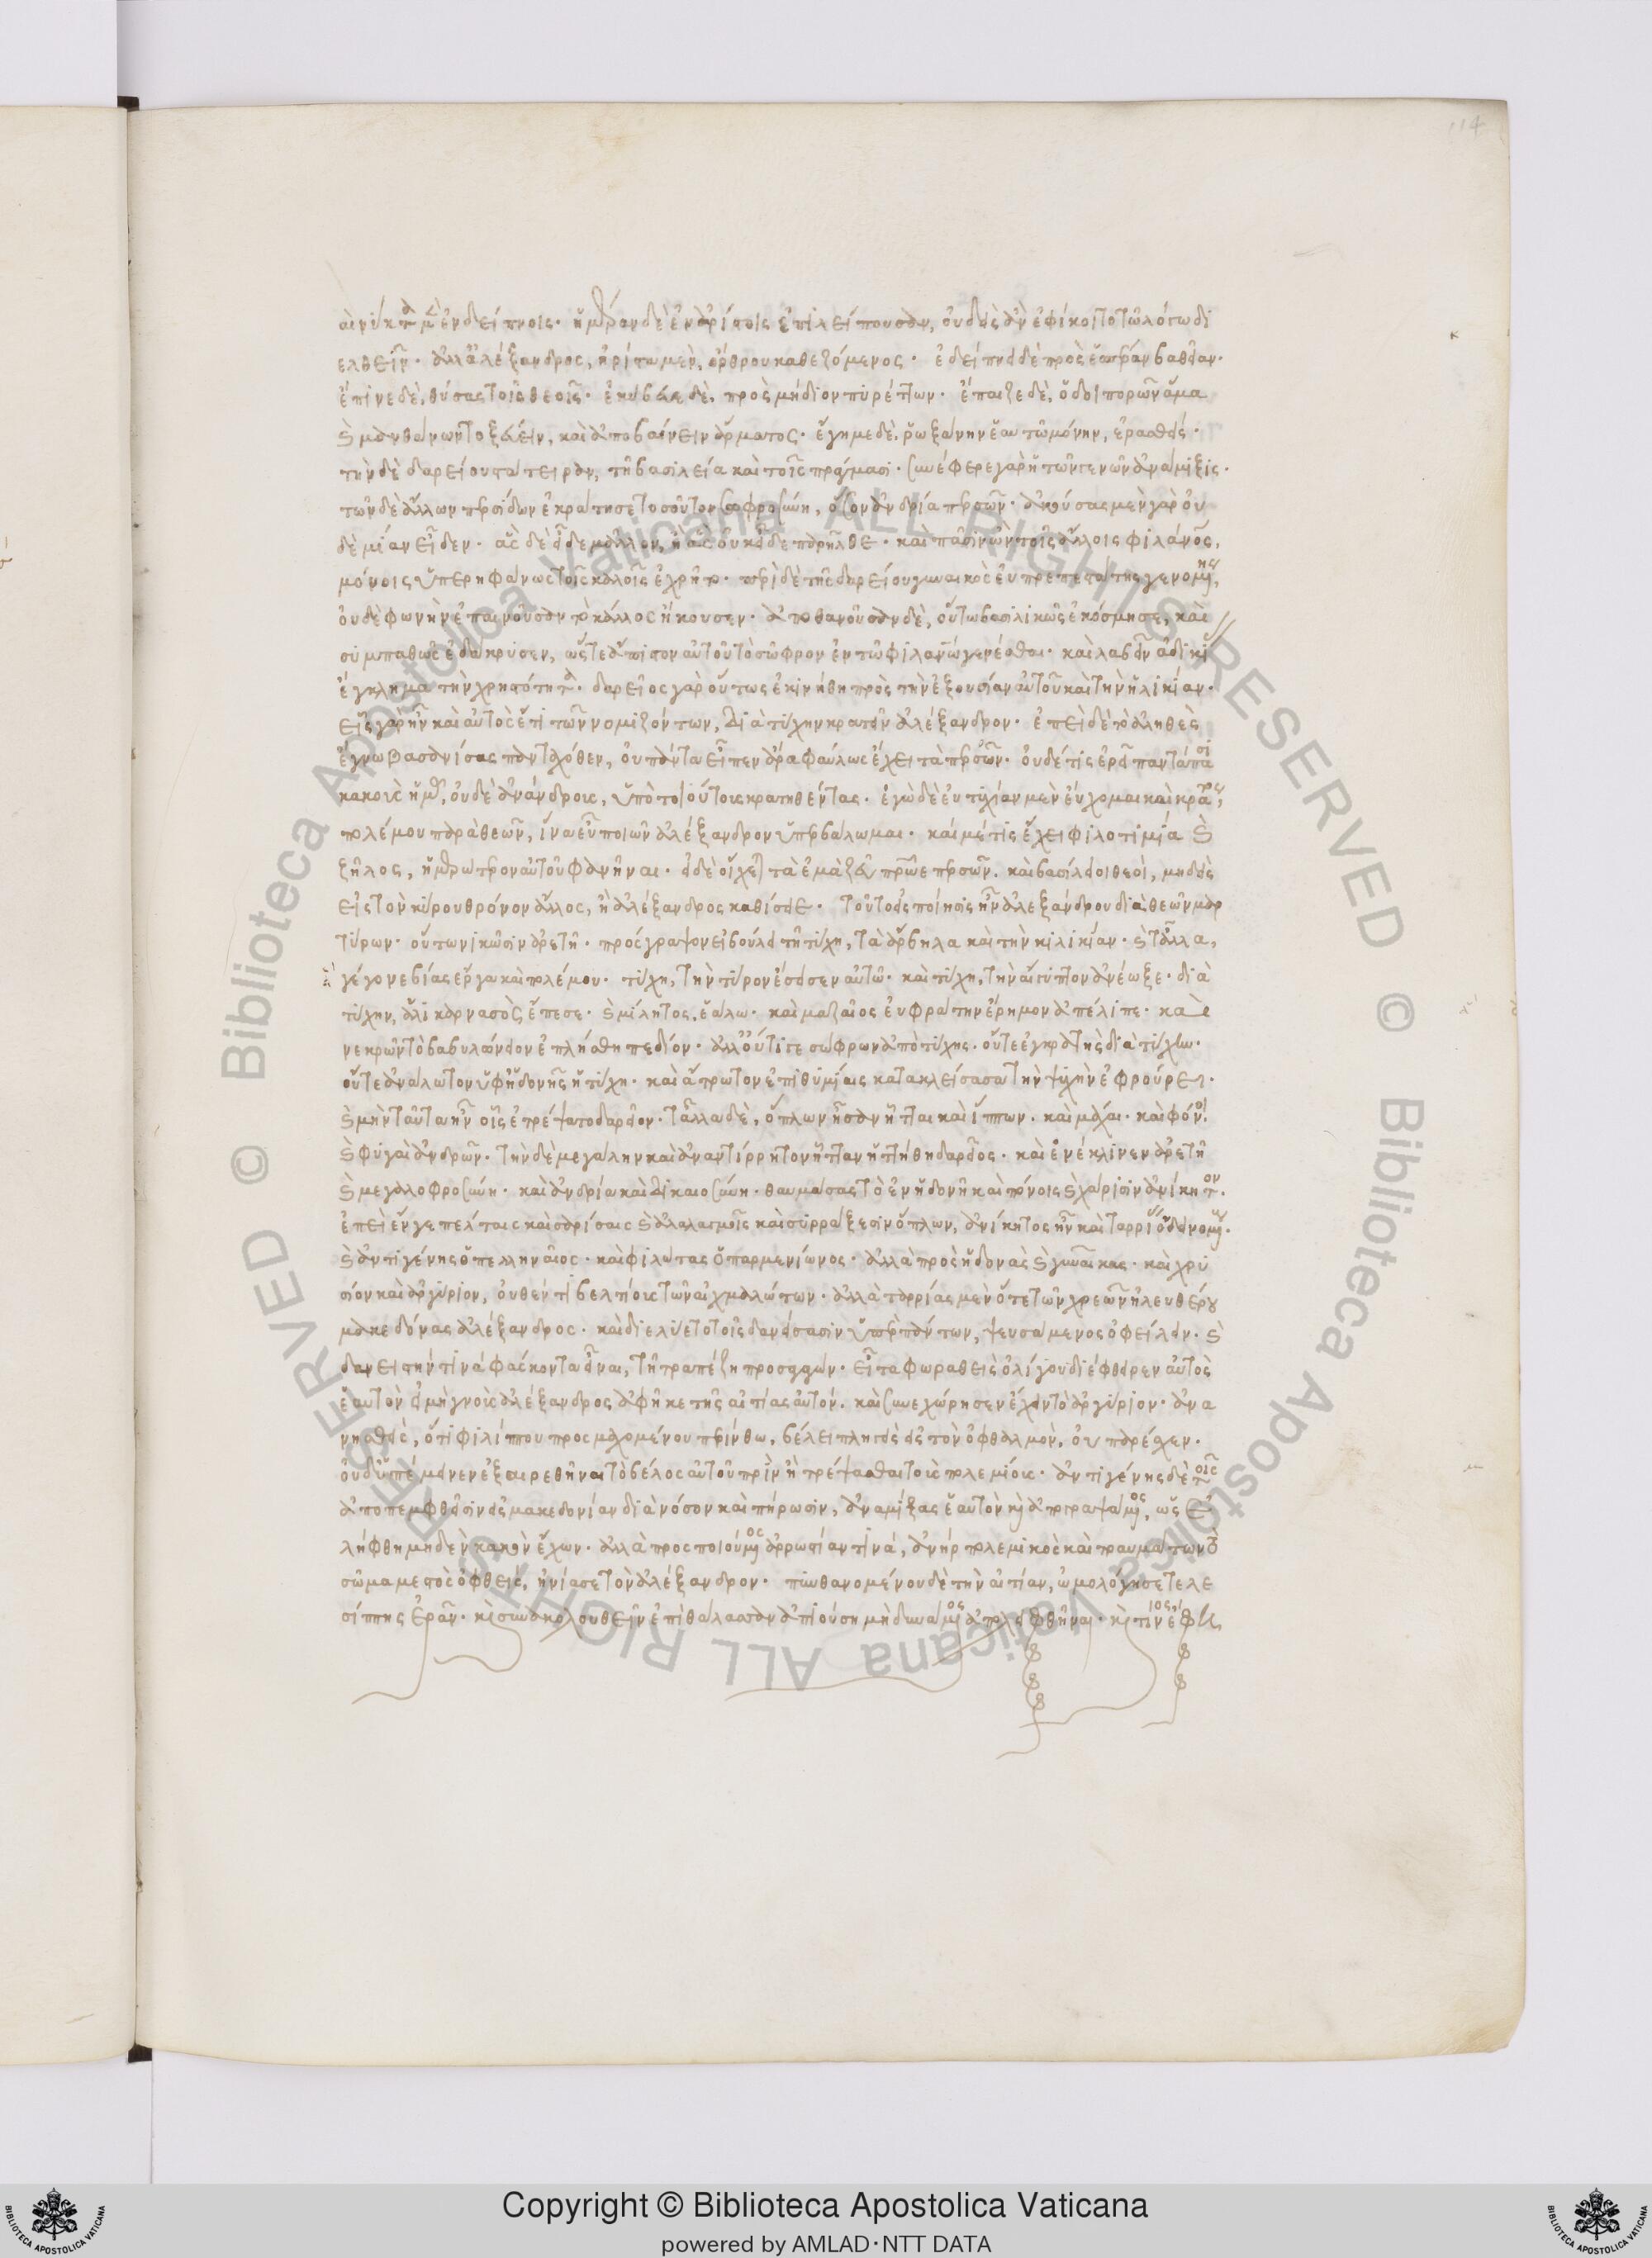 αἱ νύκτα μὲν ἐν δείπνοις· ἡμέραν δὲ ἐν ἀρίστοις ἐπιλείπουσαν, οὐδεὶς ἂν ἐφίκοιτο τῶ λόγω δι
ελθεῖν· ἀλλ' ἀλέξανδρος, ἠρίστα μὲν, ὄρθρου καθεζόμενος· ἐδείπνει δὲ πρὸς ἑσπέραν βαθεῖαν·
ἔπινε δὲ, θύσας τοῖς θεοῖς· ἐκύβευε δὲ, πρὸς μήδιον πυρέττων· ἔπαιζε δὲ, ὁδοιπορῶν ἅμα
καὶ μανθάνων τοξεύειν, καὶ ἀποβαίνειν ἅρματος· ἔγημε δὲ, ῥωξάνην ἑαυτῶ μόνην, ἐρασθείς·
τὴν δὲ δαρείου στάτειραν, τῆ βασιλεία καὶ τοῖς πράγμασι· συνέφερε γὰρ ἡ τῶν γενῶν ἀνάμιξις·
τῶν δὲ ἄλλων περσίδων ἐκράτησε τοσοῦτον σωφροσύνη, ὅσον ἀνδρία περσῶν· ἀκούσας μὲν γὰρ οὐ
δὲ μίαν εἶδεν· ἃς δὲ εἶδε μᾶλλον, ἢ ἃς οὐκ εἶδε παρῆλθε· καὶ πᾶσιν ὢν τοῖς ἄλλοις φιλάνος,
μόνοις ὑπερηφάνως τοῖς καλοῖς ἐχρῆτο· περὶ δὲ τῆς δαρείου γυναικὸς εὐπρεπεστάτης γενομένης,
οὐδὲ φωνὴν ἐπαινοῦσαν τὸ κάλλος ἤκουσεν· ἀποθανοῦσαν δὲ, οὕτω βασιλικῶς ἐκόσμησε, καὶ
συμπαθῶς ἐδάκρυσεν, ὥστε ἄπιστον αὐτοῦ τὸ σῶφρον ἐν τῶ φιλανω γενέσθαι· καὶ λαβεῖν ἀδικί
ἔγκλημα τὴν χρηστότητα· δαρεῖος γὰρ οὕτως ἐκινήθη πρὸς τὴν ἐξουσίαν αὐτοῦ καὶ τὴν ἡλικίαν·
εἷς γὰρ ἦν καὶ αὐτὸς ἔτι τῶν νομιζόντων, διὰ τύχην κρατεῖν ἀλέξανδρον· ἐπεὶ δὲ τὸ ἀληθὲς
ἔγνω βασανίσας πανταχόθεν, οὐ πάντα εἶπεν ἄρα φαύλως ἔχει τὰ περσῶν· οὐδέ τις ἐρεῖ παντάπασι
κακοὺς ἡμᾶς, οὐδὲ ἀνάνδρους, ὑπὸ τοιούτοις κρατηθέντας· ἐγὼ δὲ εὐτυχίαν μὲν εὔχομαι καὶ κράτος,
πολέμου παρὰ θεῶν, ἵνα εὖ ποιῶν ἀλέξανδρον ὑπερβάλωμαι· καί μέ τις ἔχει φιλοτιμία καὶ
ζῆλος, ἡμερώτερον αὐτοῦ φανῆναι· εἰ δὲ οἴχεται τὰ ἐμὰ ζεῦ πατρῶε περσῶν, καὶ βασίλειοι θεοὶ, μηδεὶς
εἰς τὸν κύρου θρόνον ἄλλος, ἢ ἀλέξανδρος καθίσειε· τοῦτο εἰσποίησις ἦν ἀλεξάνδρου διὰ θεῶν μαρ
τύρων· οὕτω νικῶσιν ἀρετῆ· πρόσγραψον εἰ βούλει τῆ τύχη, τὰ ἄρβηλα καὶ τὴν κιλικίαν· καὶ τἄλλα,
ἃ γέγονε βίας ἔργα καὶ πολέμου· τύχη, τὴν τύρον ἔσεισεν αὐτῶ· καὶ τύχη, τὴν αἴγυπτον ἀνέωξε· διὰ
τύχην, ἁλικαρνασὸς ἔπεσε· καὶ μίλητος, ἑάλω· καὶ μαζαῖος εὐφράτην ἔρημον ἀπέλιπε· καὶ
νεκρῶν τὸ βαβυλώνειον ἐπλήσθη πεδίον· ἀλλ' οὔτι γε σώφρων ἀπὸ τύχης· οὔτε ἐγκρατὴς διὰ τύχην·
οὔτε ἀνάλωτον ὑφ' ἡδονῆς ἡ τύχη· καὶ ἄτρωτον ἐπιθυμίαις κατακλείσασα τὴν ψυχὴν ἐφρούρει·
καὶ μὴν ταῦτα ἦν οἷς ἐτρέψατο δαρεῖον· τἄλλα δὲ, ὅπλων ἦσαν ἧτται καὶ ἵππων· καὶ μάχαι· καὶ φόνοι
καὶ φυγαὶ ἀνδρῶν· τὴν δὲ μεγάλην καὶ ἀναντίρρητον ἧτταν ἡττήθη δαρεῖος· καὶ ἐνέκλινεν ἀρετῆ
καὶ μεγαλοφροσύνη· καὶ ἀνδρία καὶ δικαιοσύνη· θαυμάσας τὸ ἐν ἡδονῆ καὶ πόνοις καὶ χάρισιν ἀνίκητον·
ἐπεὶ ἔν γε πέλταις καὶ σαρίσαις καὶ ἀλαλαγμοῖς καὶ συρράξεσιν ὅπλων, ἀνίκητος ἦν καὶ ταρρίας ὁ δεινομένους·
καὶ ἀντιγένης ὁ πελληναῖος· καὶ φιλώτας ὁ παρμενίωνος· ἀλλὰ πρὸς ἡδονὰς καὶ γυναῖκας· καὶ χρυ
σίον καὶ ἀργύριον, οὐθέν τι βελτίους τῶν αἰχμαλώτων· ἀλλὰ ταρρίας μὲν ὅτε τῶν χρεῶν ἠλευθέρου
μακεδόνας ἀλέξανδρος· καὶ διελύετο τοῖς δανείσασιν ὑπὲρ πάντων, ψευσάμενος ὀφείλειν· καὶ
δανειστήν τινά φάσκοντα εἶναι, τῆ τραπέζη προσαγαγών· εἶτα φωραθεὶς ὀλίγου διέφθειρεν αὐτὸς
ἑαυτὸν εἰ μὴ γνοὺς ἀλέξανδρος ἀφῆκε τῆς αἰτίας αὐτόν· καὶ συνεχώρησεν ἔχειν τὸ ἀργύριον· ἀνα
νησθεὶς, ὅτι φιλίππου προσμαχομένου περίνθω, βέλει πληγεὶς εἰς τὸν ὀφθαλμὸν, οὐ παρέσχεν·
οὐδ' ὑπέμεινεν ἐξαιρεθῆναι τὸ βέλος αὐτοῦ πρὶν ἢ τρέψασθαι τοὺς πολεμίους· ἀντιγένης δὲ τοῖς
ἀποπεμφθεῖσιν εἰς μακεδονίαν διὰ νόσον καὶ πήρωσιν, ἀναμίξας ἑαυτὸν καὶ ἀπογραψάμενος, ὡς ἐ
λήφθη μηδὲν κακὸν ἔχων· ἀλλὰ προσποιούμενος ἀρρωστίαν τινά, ἀνὴρ πολεμικὸς καὶ τραυμάτων τὸ
σῶμα μεστὸς ὀφθεὶς, ἠνίασε τὸν ἀλέξανδρον· πυνθανομένου δὲ τὴν αἰτίαν, ὡμολόγησε τελε
σίππης ἐρᾶν· καὶ συνακολουθεῖν ἐπὶ θάλασσαν ἀπιούση μὴ δυνάμενος ἀπολειφθῆναι· καὶ τίνος ἔφη